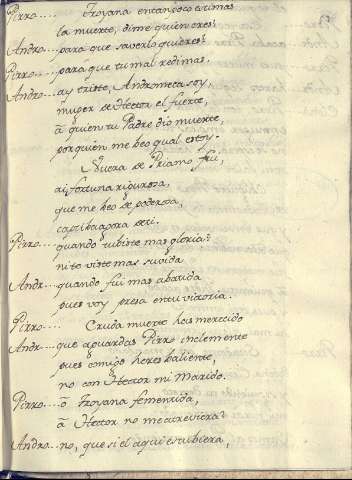 Pirro.... Troyana en tan poco estimas
la muerte, dime quien eres?
Andro.... para que saverlo quieres?
Pirro.... para que tu mal redimas.
Andro.... ay triste, Andromeca soy,
muger de Hector el fuerte,
à quien tu Padre dio muerte,
por quien me beo qual estoy.
Nuera de Priamo fui,
ai fortuna rigurosa,
que me beo de poderosa,
captiba aora de ti.
Pirro.... quando tubiste mas gloria?
ni te viste mas suvida
Andr.... quando fui mas abatida
pues voy presa en tu victoria.
Pirro.... Cruda muerte has merecido
Andr.... que aguardas Pirro inclemente
pues conmigo heres baliente,
no con Hector mi Marido.
Pirro.... ò Troyana fementida,
à Hector no me atreviera?
Andro.... no, que si el aqui estubiera,